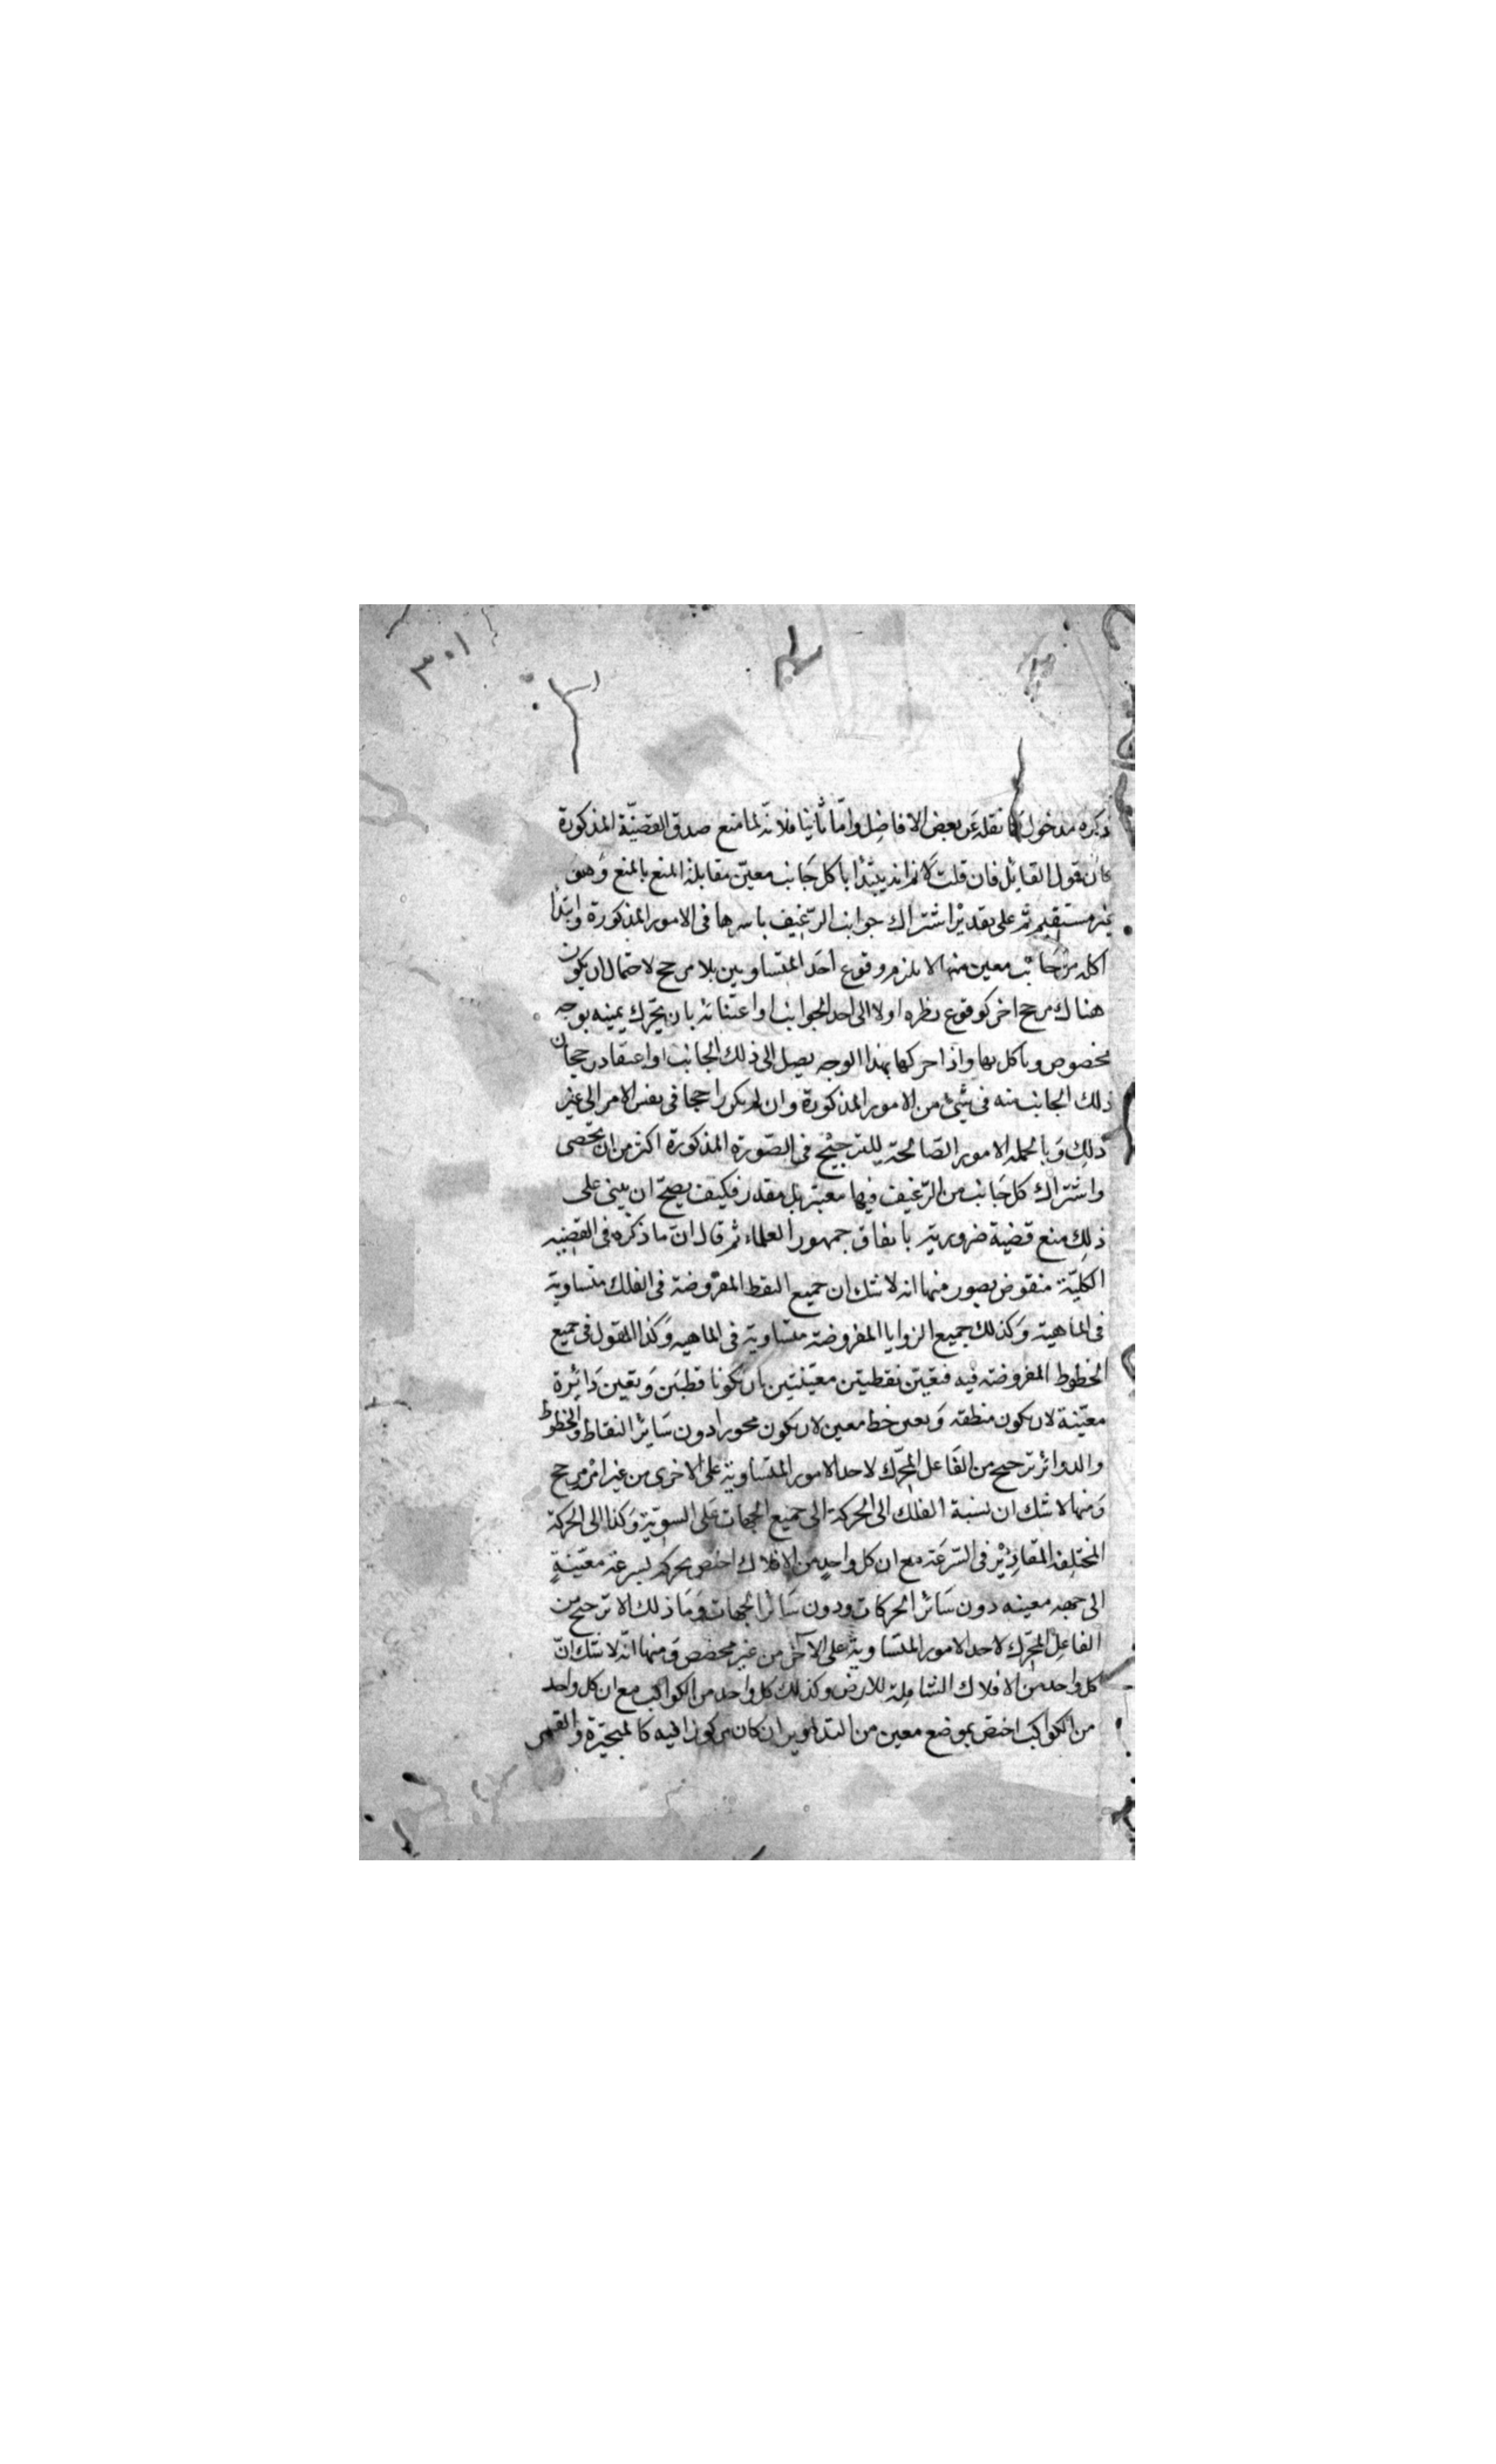 ٣٠١
ذكره مدخول كما نقله عن بعض الافاضل واما ثانيا فلانه لما منع صدق القضية المذكورة
كان قول القائل فان قلت لانم انه يبتدأ باكل جانب معين مقابلة المنع بالمنع وهو
غير مستقيم ثم على تقدير اشتراك جوانب الرغيف باسرها فى الامور المذكورة وابتدأ
اكله من جانب معين منها لا يلزم وقوع احد المتساويين بلا مرجح لاحتمال ان يكون
هناك مرجح اخر كوقوع نظره اولا الى احد الجوانب او اعتنائه بان يتحرك يمينه بوجه
مخصوص وياكل بها واذا حركها بهذا الوجه يصل الى ذلك الجانب او اعتقاد رجحان
ذلك الجانب منه فى شئ من الامور المذكورة وان لم يكن راجحا فى نفس الامر الى غير
ذلك وبالجمله الامور الصالحة للترجيح فى الصورة المذكورة اكثر من ان تحصى
واشتراك كل جانب من الرغيف فيها معبر بل مقدر فكيف يصح ان يبنى على
ذلك منع قضية ضرورية باتفاق جمهور العلماء ثم قال ان ما ذكره فى القضيه
الكلية منقوض بصور منها انه لا شك ان جميع النقط المفروضة فى الفلك متساوية
فى الماهية وكذلك جميع الزوايا المفروضة متساوية فى الماهيه وكذا القول فى جميع
الخطوط المفروضة فيه فتعين نقطتين معينتين بان يكونا قطبين وتعين دائرة
معينة لان يكون منطقه وتعين خط معين لان يكون محورا دون سائر النقاط والخطوط
والدوائر ترجيح من الفاعل المحرك لاحد الامور المتساوية على الاخرى من غير امر مرجح
ومنها لا شك ان نسبة الفلك الى الحركة الى جميع الجهات على السوية وكذا الى الحركة
المختلفة المقادير فى السرعة مع ان كل واحد من الافلاك اختص بحركه بسرعة معينة
الى جهه معينه دون سائر الحركات ودون سائر الجهات وما ذلك الا ترجيح من
الفاعل المحرك لاحد الامور المتساوية على الآخر من غير مخصص ومنها انه لا شك ان
كل واحد من الافلاك الشاملة للارض وكذلك كل واحد من الكواكب مع ان كل واحد
من الكواكب اختص بموضع معين من التداوير ان كان مركوزا فيه كالمتحيرة والقمر